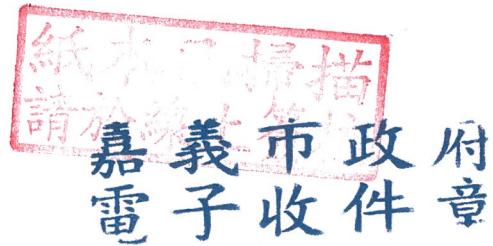 紙本已掃描
請於線上簽核
嘉義市政府
電子收件章